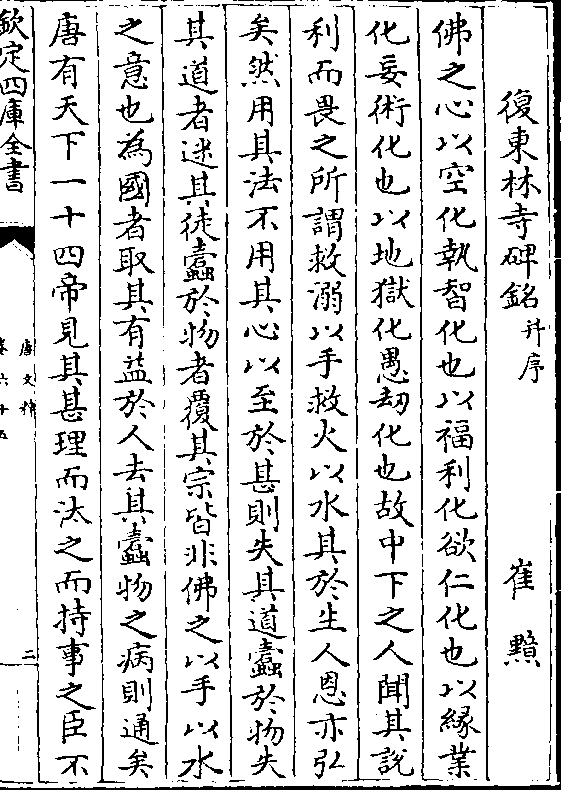 復東林寺碑銘并序 崔黯
佛之心以空化執智化也以福利化欲仁化也以緣業
化妄術化也以地獄化愚刼化也故中下之人聞其說
利而畏之所謂救溺以手救火以水其於生人恩亦弘
矣然用其法不用其心以至於甚則失其道蠹於物失
其道者迷其徒蠹於物者覆其宗皆非佛之以手以水
之意也為國者取其有益於人去其蠹物之病則通矣
唐有天下一十四帝見其甚理而汰之而持事之臣不
欽定四庫全書
唐文粹
卷六十五
二